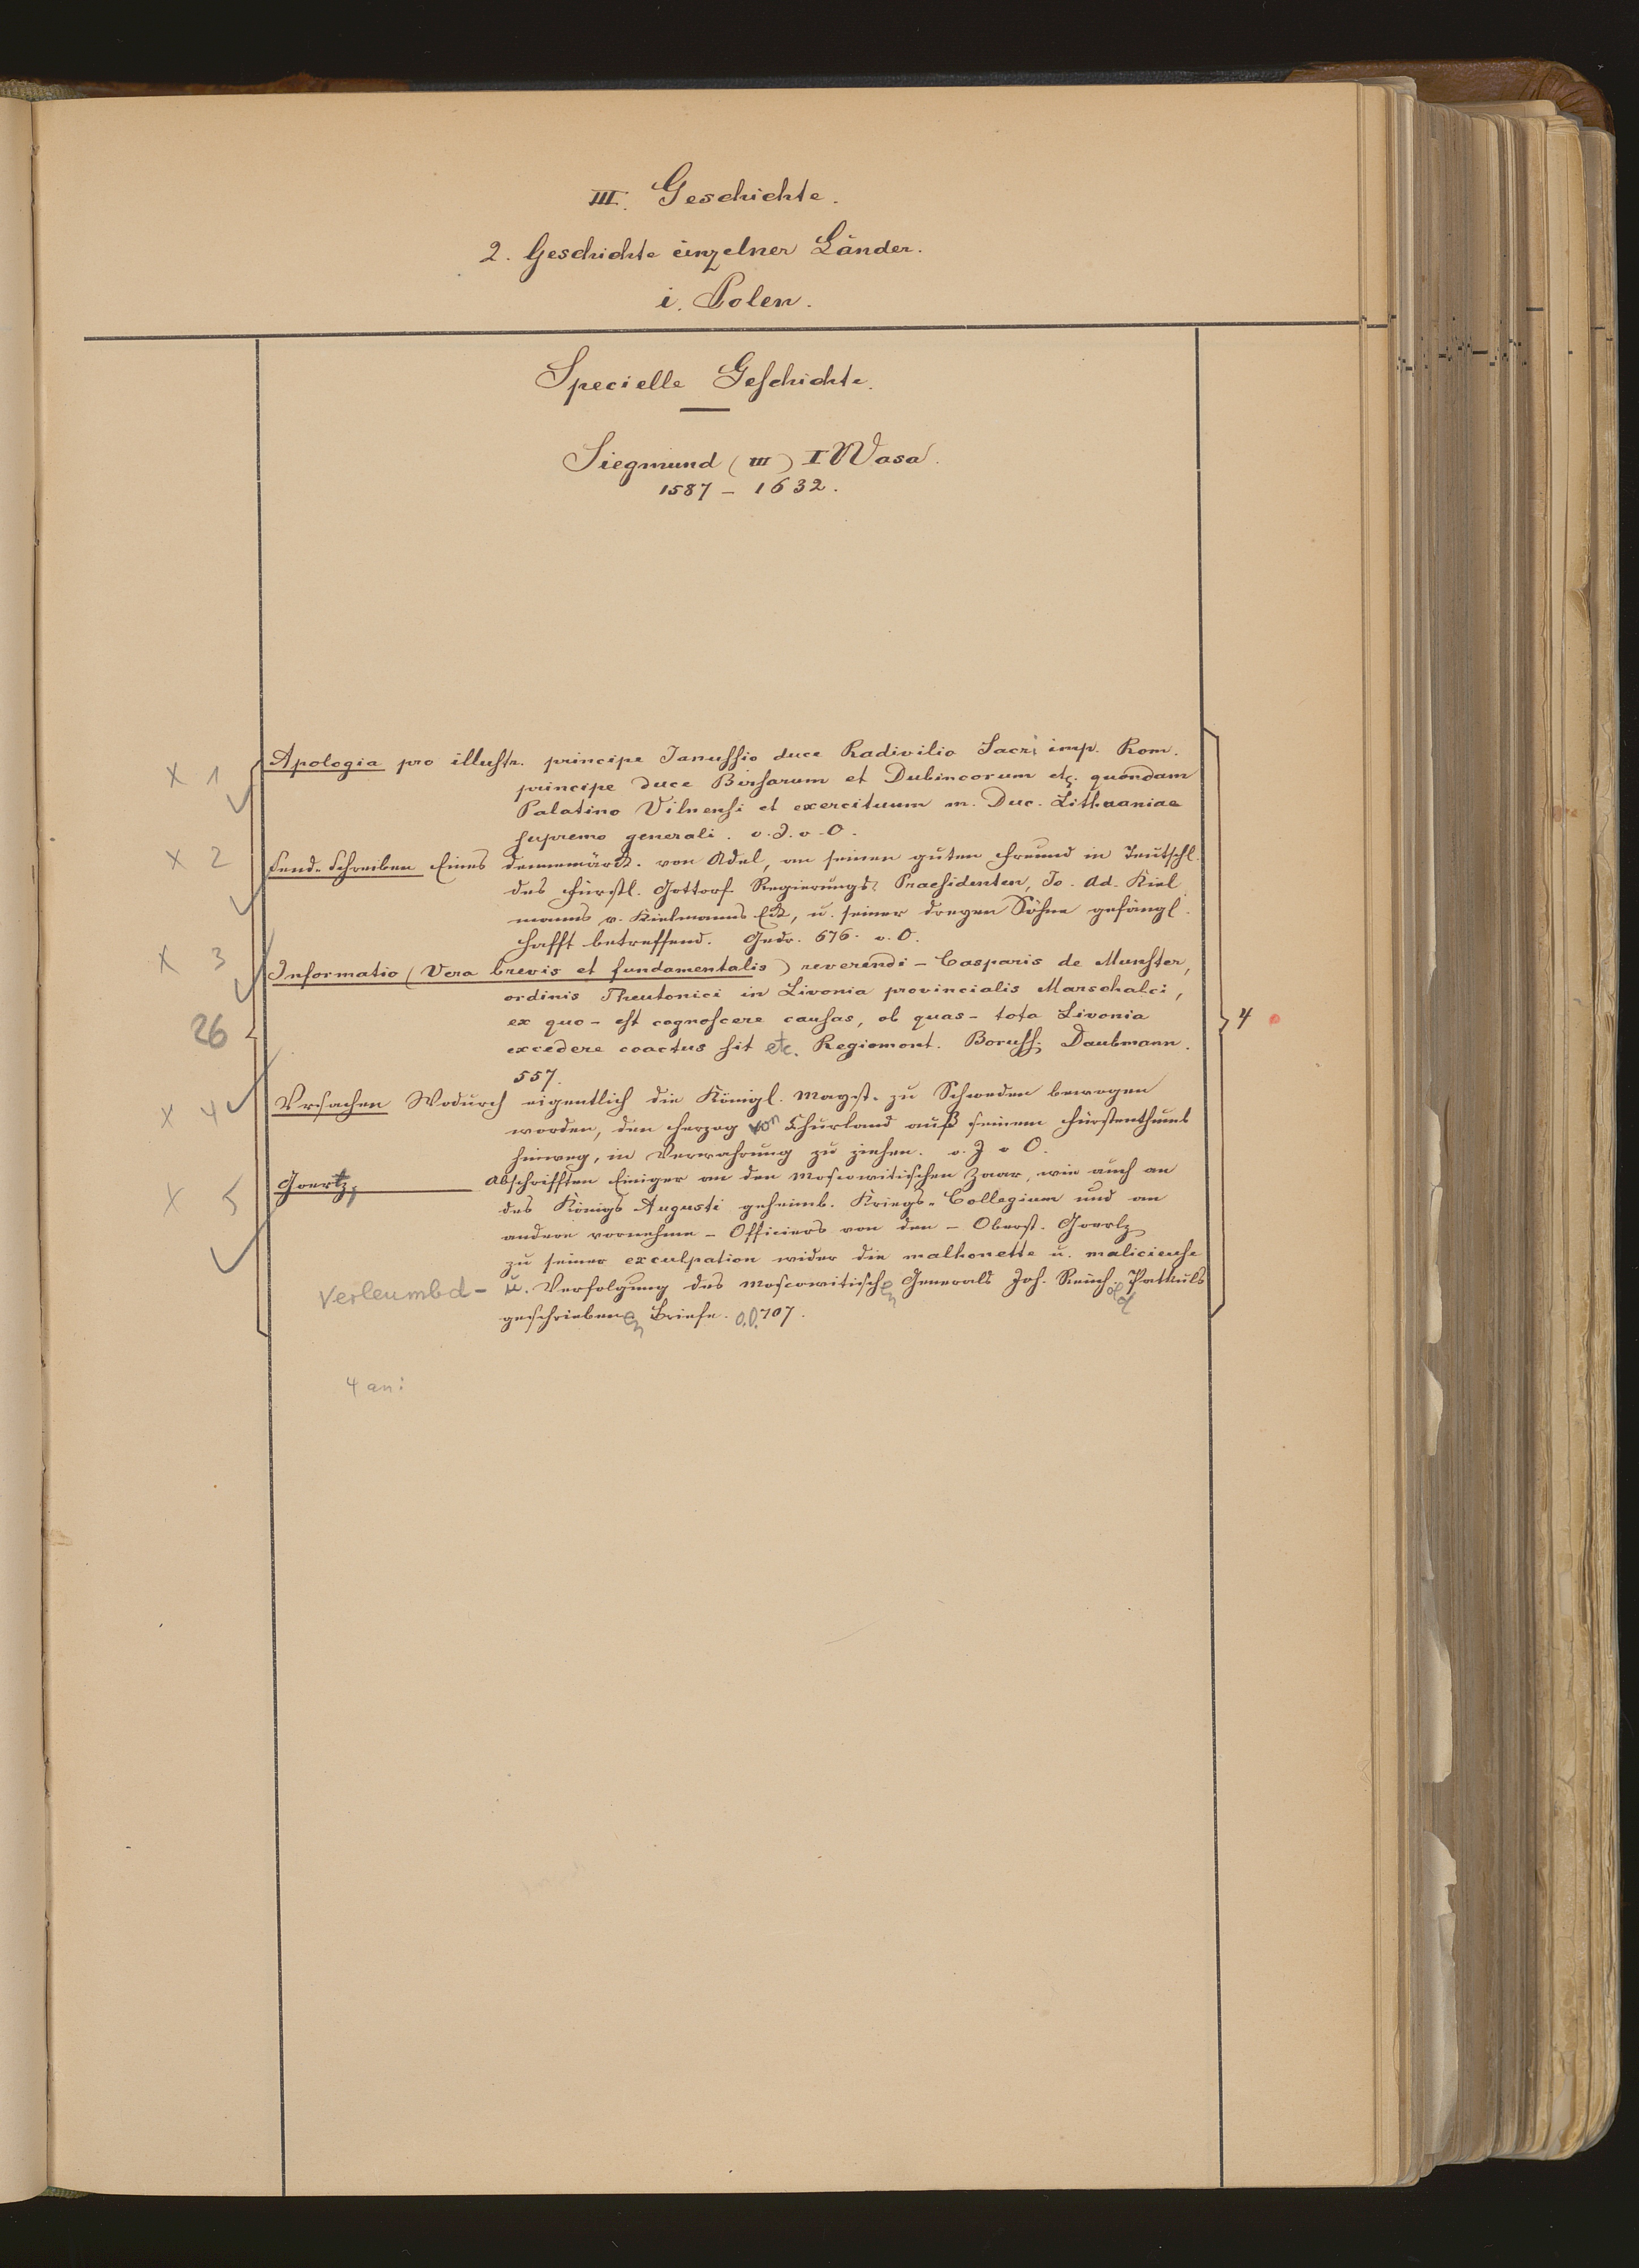 III. Geschichte.
2. Geschichte einzelner Länder.
i. Polen.
Specielle Geschichte.
Siegmund (III) I Wasa.
1587 – 1632.
x 1 Apologia pro illustr. principe Janussio duce Radivilio Sacri imp. Rom.
principe duce Birsarum et Dubincorum etc. quondam
Palatino Vilnensi et exercituum m. Duc. Lithuaniae
supremo generali. o. J. o. O.
x 2 Send-Schreiben Eines dennemärck. von Adel, an seinen guten Freund in Teutschl.
des Fürstl. Gottorf. Regierungs-Praesidenten, Jo. Ad. Kiel
manns v. Kielmanns Eck, u. seiner dreyen Söhne gefängl.
hafft betreffend. Gedr. 676. o. O.
x 3 Informatio (Vera brevis et fundamentalis) reverendi – Casparis de Munster,
ordinis Theutonici in Livonia provincialis Marschalci,
26 ex quo – est cognoscere causas, ob quas – tota Livonia 4
excedere coactus sit etc. Regiomont. Boruss. Daubmann.
557.
x 4 Vrsachen Wodurch eigentlich die Königl. Mayst. zu Schweden bewogen
worden, den Herzog von Churland auß seinem Fürstenthumb
hinweg, in Verwahrung zu ziehen. o. J. o. O.
x 5 Goertz, Abschrifften Einiger an den Moscowitischen Zaar, wie auch an
des Königs Augusti geheimb. Kriegs-Collegium und an
andere vornehme – Officiers von den – Oberst. Goertz
zu seiner exculpation wider die malhonette u. malicieuse
Verleumbd- u. Verfolgung des Moscowitischen Generals Joh. Reinhold Patkuls
geschriebenen Briefe. o. O. 707.
4 an: